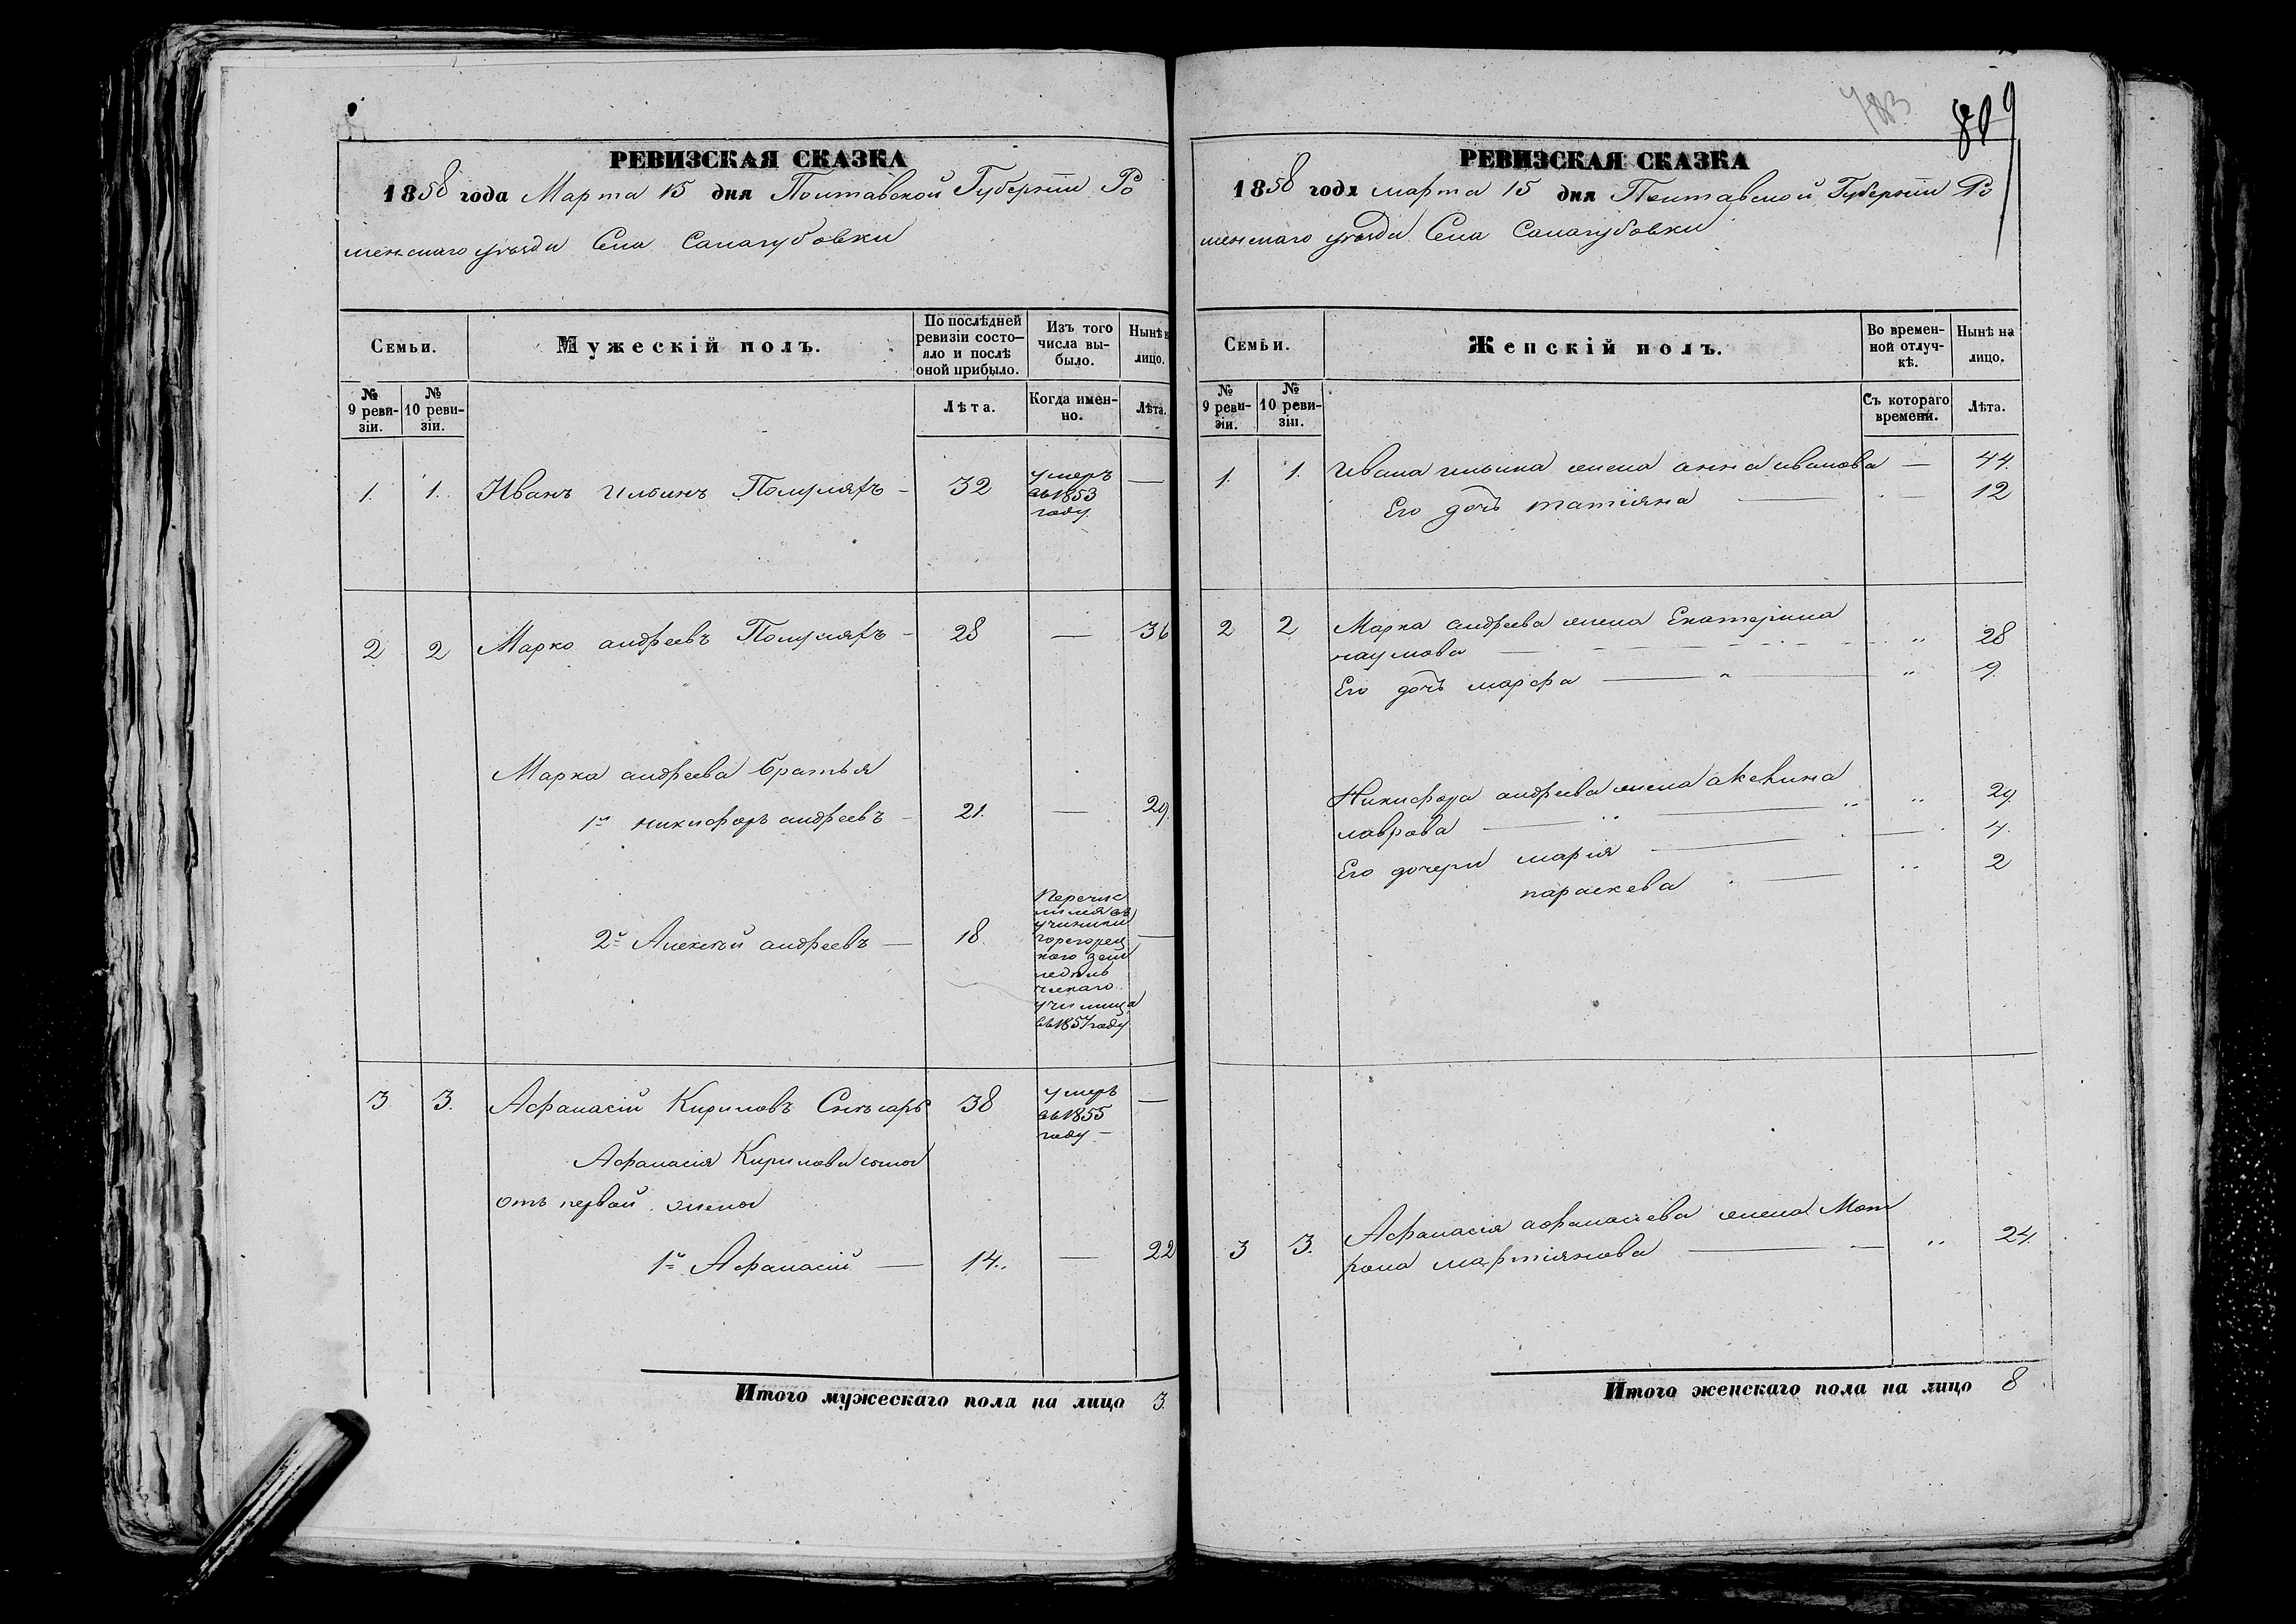 783
809
РЕВИЗСКАЯ СКАЗКА
1858 года Марта 15 дня Полтавской Губерніи Ро
менскаго уѣзда Села Салагубовки
Семьи.
Мужескій полъ.
По послѣдней ревизіи состо-
яло и послѣ
оной прибыло.
Изъ того
числа вы-
было.
Нынѣ н
лицо.
№
9 реви-
зіи.
№
10 реви-
зіи.
Лѣта.
Когда имен-
но.
Лѣта.
1. 1. Иванъ Ильинъ 32 умеръ
въ 1853
году.
2 2 Марко андреевъ 28 — 36
Марка андреева братья
1й никифоръ андреевъ 21. — 29.
2й Алексѣй андреевъ — 18. —
Перечис
лился въ
ученики
горегорец
каго земле
дѣль
ческаго
училища
въ 1857 году
3 3. Афанасій Кириловъ 38 умеръ
въ 1855
году —
Афанасія Кирилова сыны
отъ первой жены
1й Афанасій — 14. — 22
Итого мужескаго пола на лицо 3.
РЕВИЗСКАЯ СКАЗКА
1858 года марта 15 дня Полтавской Губерніи Ро
менскаго уѣзда Села Салагубовки
Семьи.
Женскій полъ.
Во времен-
ной отлуч-
кѣ.
Нынѣ на
лицо.
№
9 реви-
зіи.
№
10 реви-
зіи.
Съ котораго
времени.
Лѣта.
1. 1. Ивана ильина жена анна иванова — 44.
Его дочь татіяна — 12
2 2 Марка андреева жена Екатерина
наумова — " 28
Его дочь марфа — " 9.
Никифора андреева жена аксенина
лаврова — " 29.
Его дочери марія — 4.
параскева — " 2
3 3. Афанасія афанасіева жена Мот
рона мартіянова — " 24.
Итого женскаго пола на лицо 8